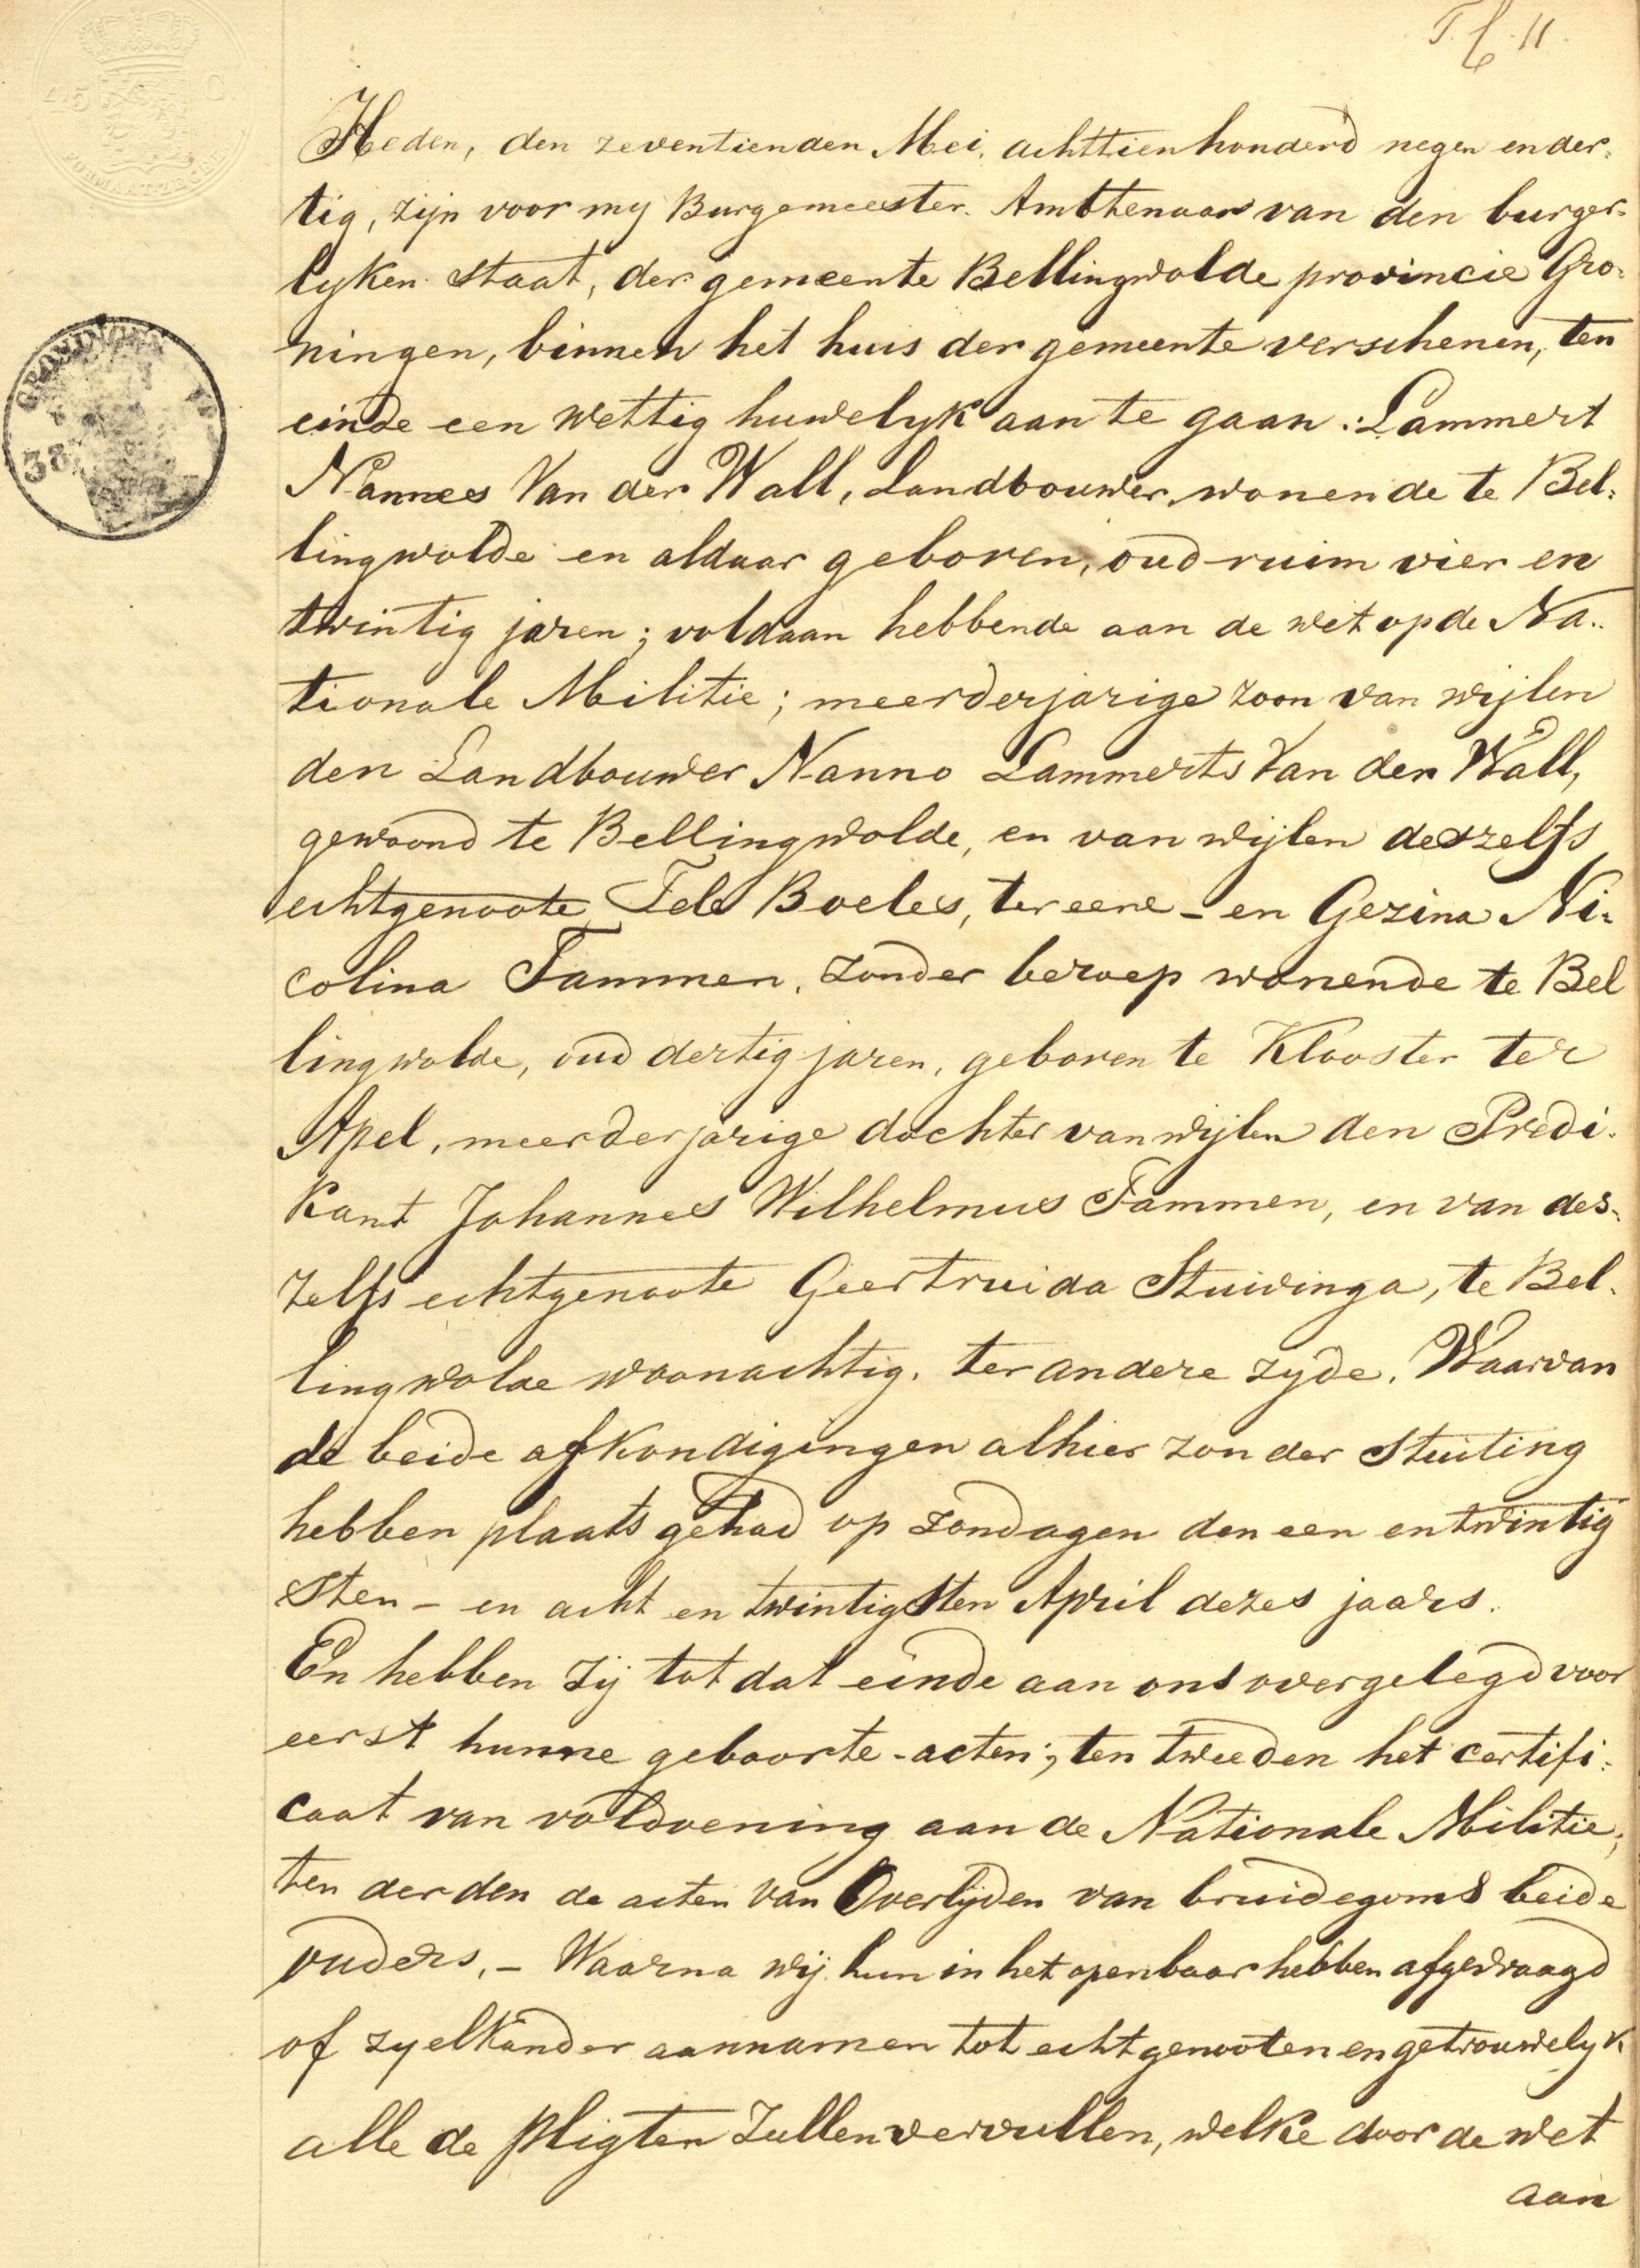 T. C. 11.
45 C
FORMAATZEGEL
GRONINGEN
38
Heden, den zeventienden Mei, achttienhonderd negen en der=
tig, zijn voor my Burgemeester. Ambtenaar van den burger=
lyken staat, der gemeente Bellingwolde provincie Gro=
ningen, binnen het huis der gemeente verschenen, ten
einde een wettig huwelyk aan te gaan: Lammert
Nannes Van der Wall, Landbouwer, wonende te Bel=
lingwolde en aldaar geboren, oud ruim vier en
twintig jaren; voldaan hebbende aan de wet op de Na=
tionale Militie; meerderjarige zoon van wijlen
den Landbouwer Nanno Lammerts Van der Wall,
gewoond te Bellingwolde, en van wijlen deszelfs
echtgenoote Tele Boeles, ter eene - en Gezina Ni=
colina Tammen, zonder beroep wonende te Bel
lingwolde, oud dertig jaren, geboren te Klooster ter
Apel, meerderjarige dochter van wijlen den Predi=
kant Johannes Wilhelmus Tammen, en van des=
zelfs echtgenoote Geertruida Stuivinga, te Bel=
lingwolde woonachtig. ter andere zyde. Waarvan
de beide afkondigingen alhier zonder Stuiting
hebben plaats gehad op zondagen den een en twintig
sten - en acht en twintigsten April dezes jaars.
En hebben zij tot dat einde aan ons overgelegd voor
eerst hunne geboorte-acten; ten tweeden het certifi=
caat van voldoening aan de Nationale Militie;
ten derden de acten van Overlijden van bruidegoms beide
ouders. - Waarna wij hun in het openbaar hebben afgevraagd
of zy elkander aannamen tot echtgenooten en getrouwelyk
alle de pligten zullen vervullen, welke door de wet
aan